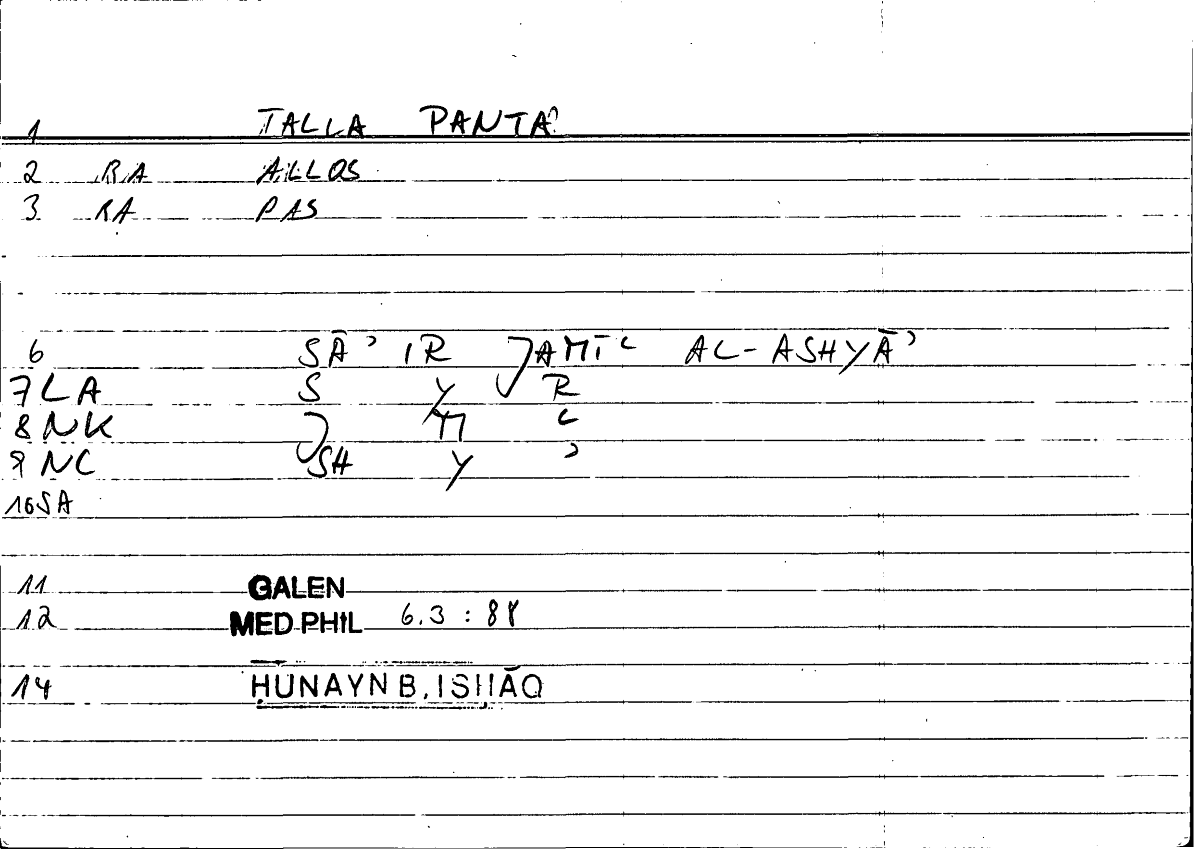 1 TALLA PANTA
2 RA ALLOS
3 RA PAS
6 SĀʾIR JAMĪʿ AL-ASHYĀʾ
7 LA S Y R
8 NK J M ʿ
9 NC SH Y ʾ
10 SA
11 GALEN
12 MED.PHIL 6.3 : 88
14 ḤUNAYN B. ISḤĀQ